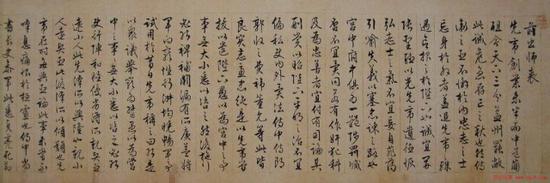 前出師表
先帝創業未半而中道崩
殂今天下三分益州罷敝
此誠危急存亡之秋也然侍
衛之臣不懈於內忠志之士
忘身於外者蓋追先帝之殊
遇欲報之於陛下也誠宜開
張聖聽以光先帝遺德恢
弘志士之氣不宜妄自菲薄
引喻失義以塞忠諫之路也
宮中府中俱為一體陟罰臧
否不宜異同若有作姦犯科
及為忠善者宜付有司論其
刑賞以昭陛下平明之治不宜
偏私使內外異法也侍中侍郎
郭攸之費禕董允等此皆
良實志慮忠純是以先帝簡
拔以遺陛下愚以為宮中之事
事無大小悉以咨之然後施行
必能裨補闕漏有所廣益將
軍向寵性行淑均曉暢軍事
試用於昔日先帝稱之曰能是
以眾議舉寵為督愚以為營
中之事事無大小悉以咨之必能
使行陣和穆優劣得所也親賢
臣遠小人此先漢所以興隆也親小
人遠賢臣此後漢所以傾頹也先
帝在時每與臣論此事未嘗不
嘆息痛恨於桓靈也侍中尚
書長史參軍此悉貞亮死節